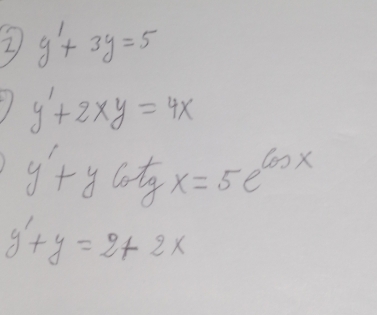 2) y' + 3y = 5
) y' + 2xy = 4x
) y' + y cotg x = 5e^cos x
y' + y = 2 + 2x